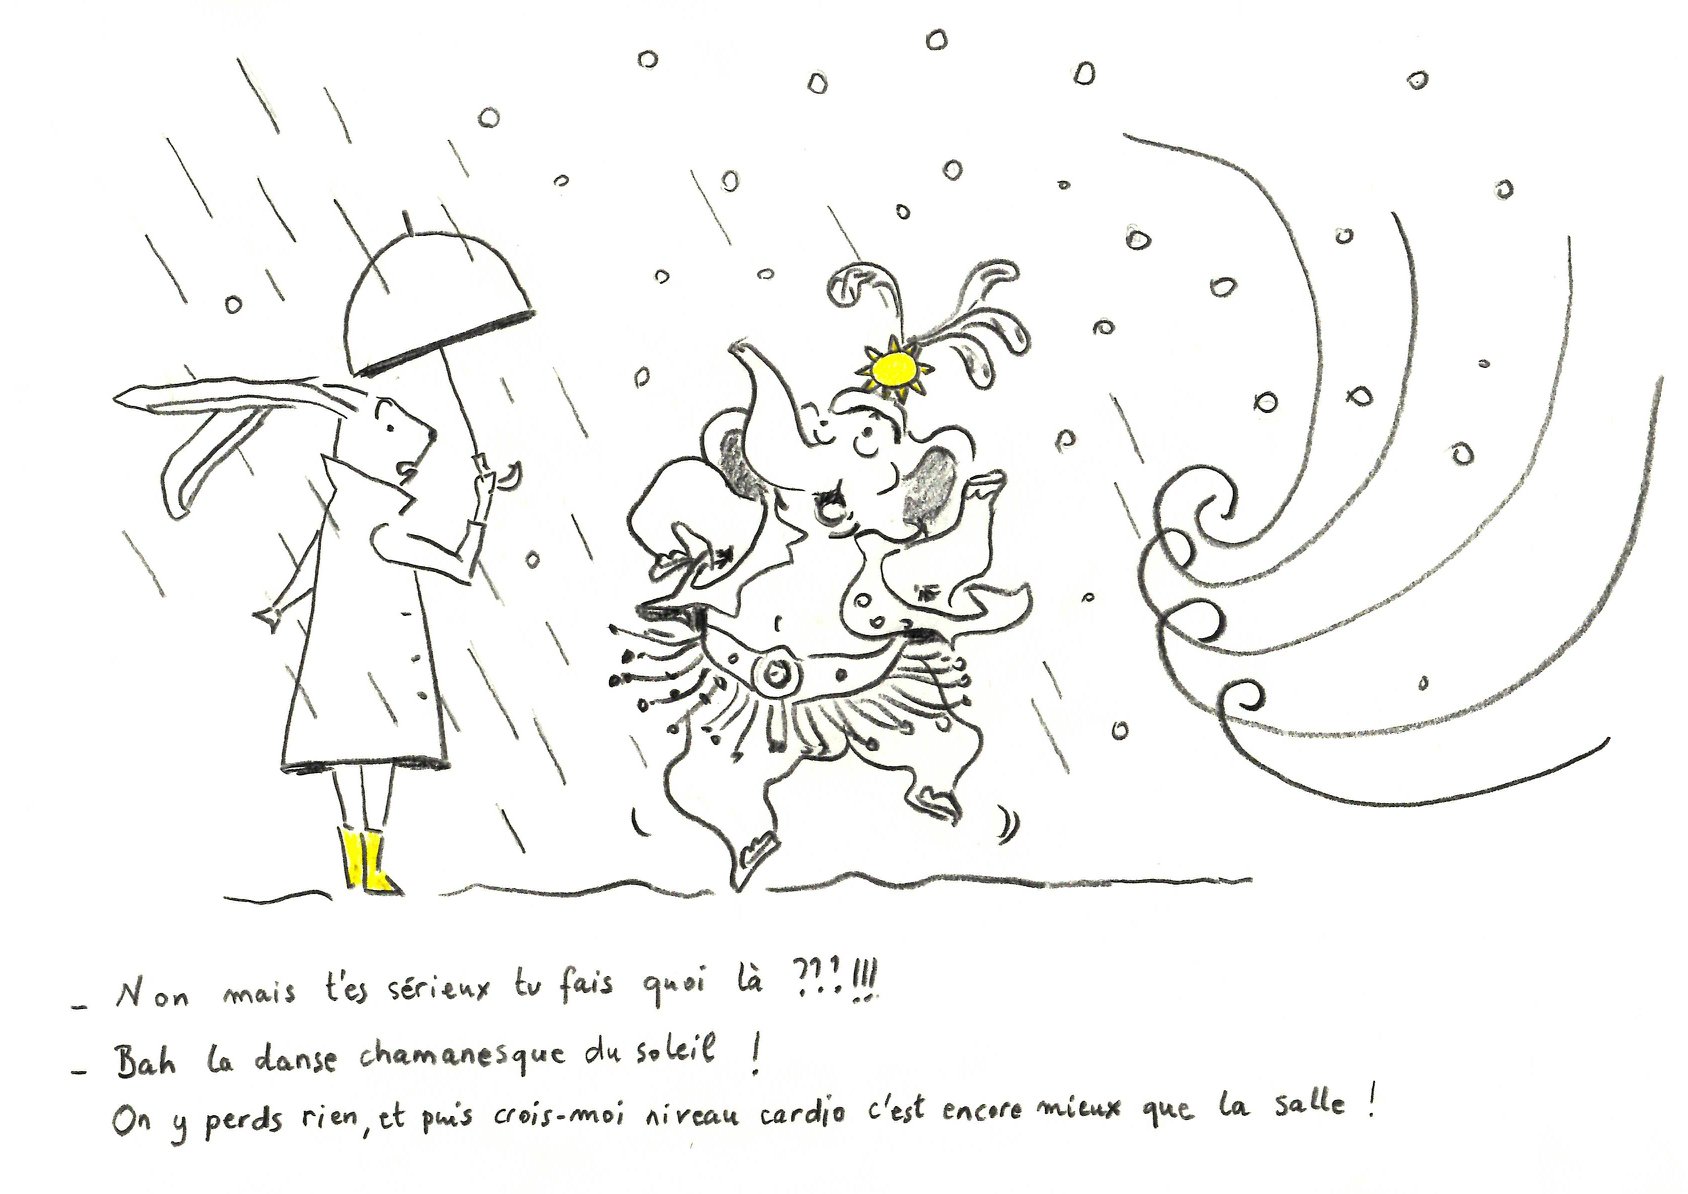 _ Non mais t'es sérieux tu fais quoi là ???!!!
_ Bah la danse chamanesque du soleil !
On y perds rien, et puis crois-moi niveau cardio c'est encore mieux que la salle !